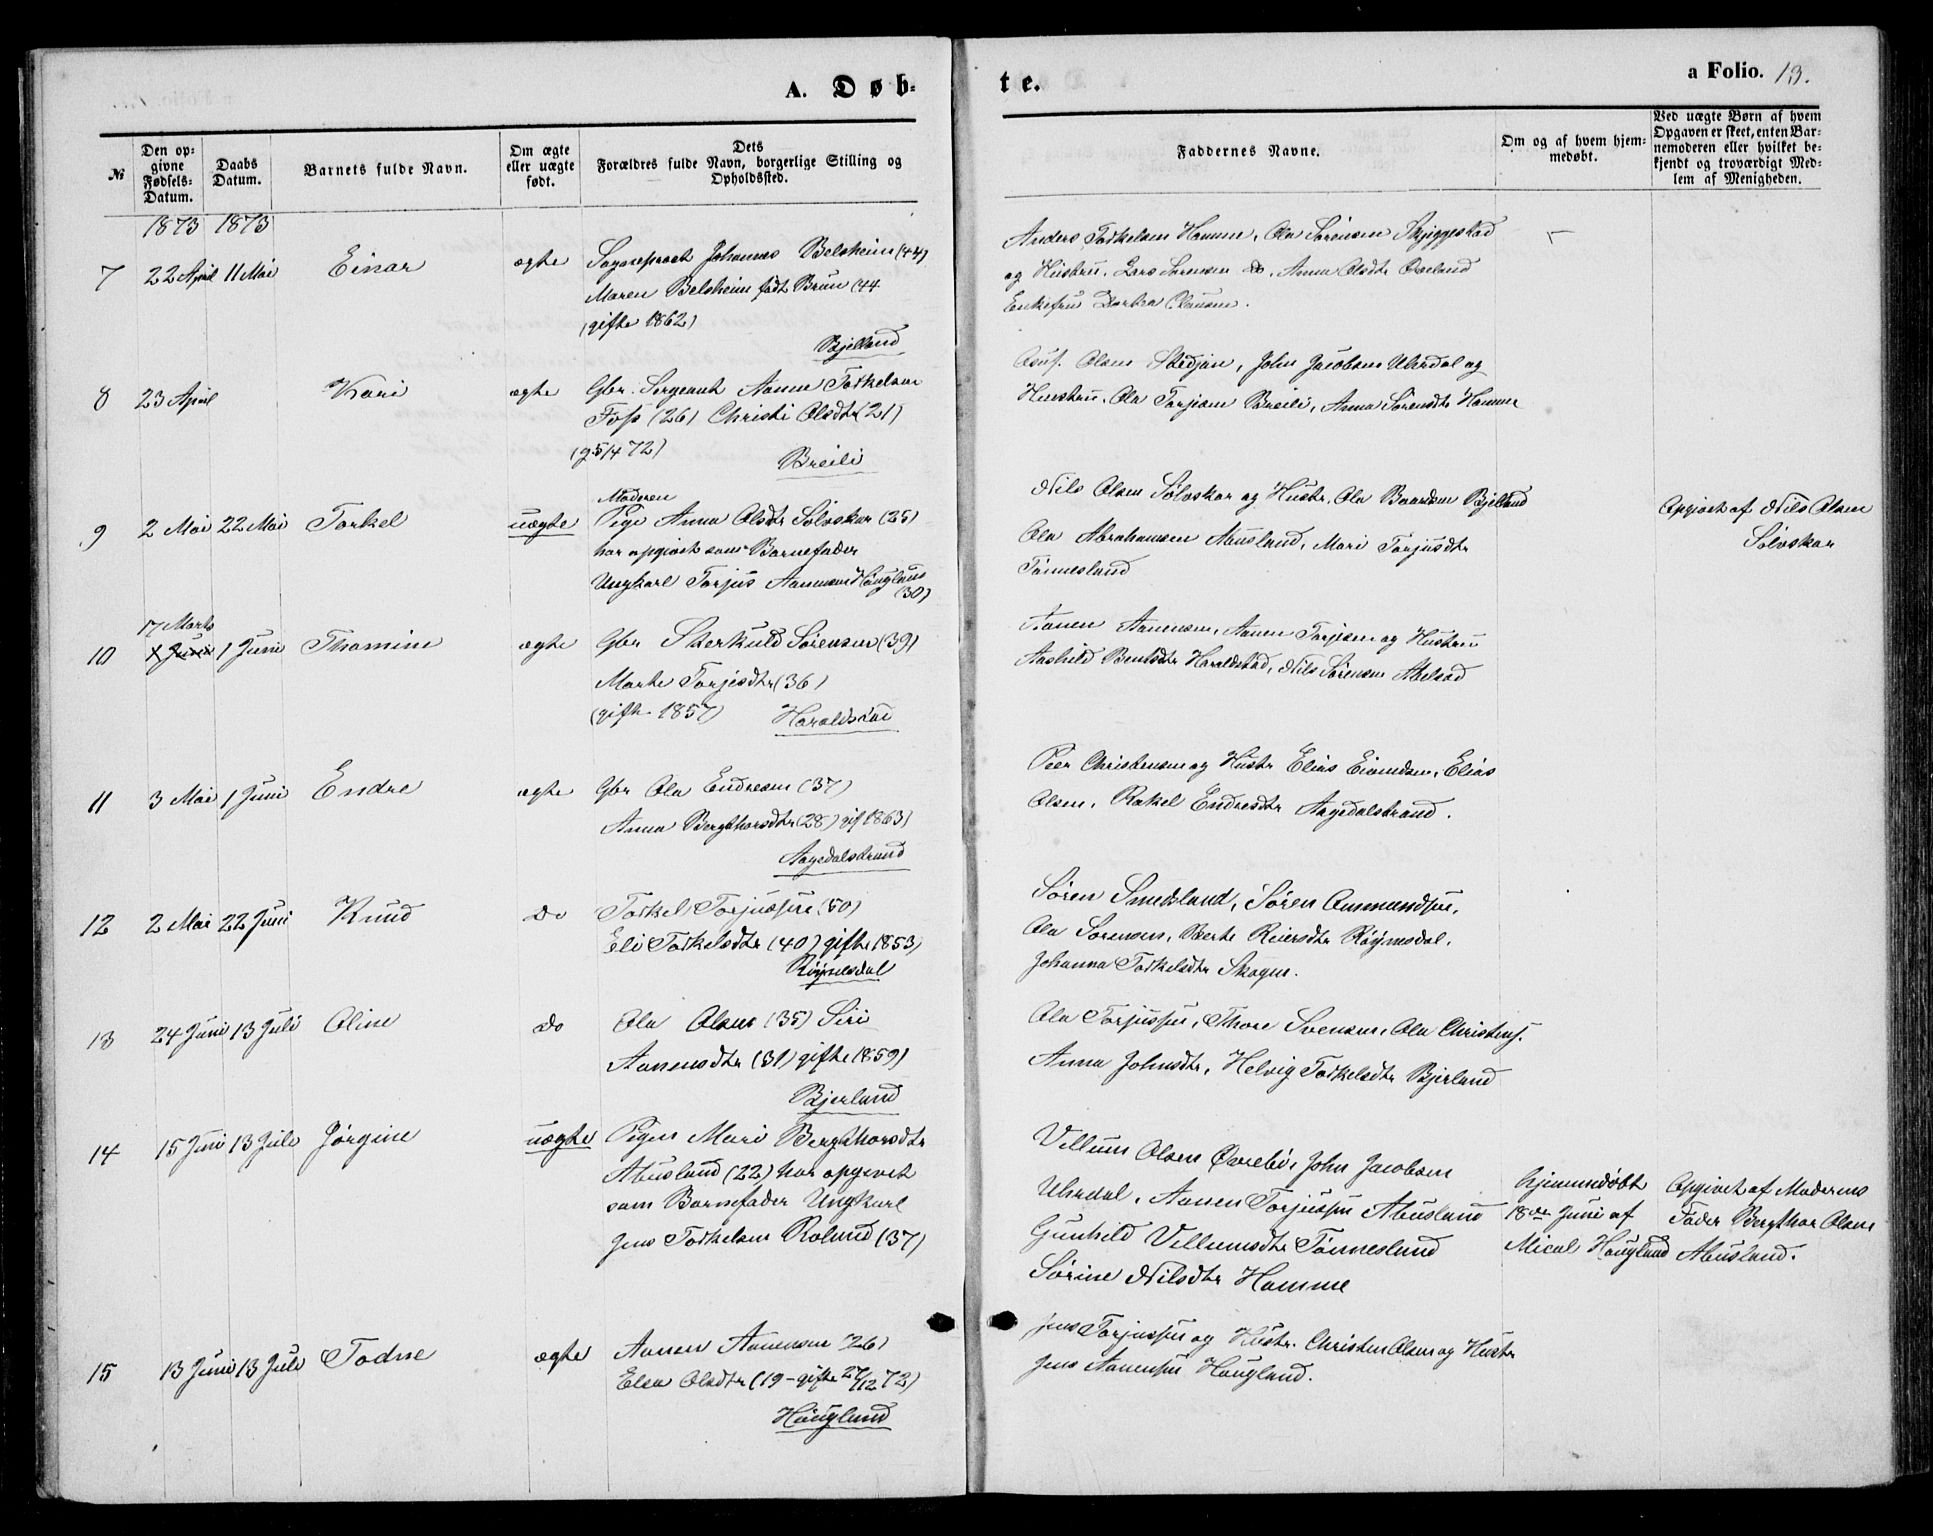 A. Døb-
te.
a Folio. 13.
№
Den op-
givne
Fødsels-
Datum.
Daabs
Datum.
Barnets fulde Navn.
Om ægte
eller uægte
født.
Dets
Forældres fulde Navn, borgerlige Stilling og
Opholdssted.
Faddernes Navne.
Om og af hvem hjem-
medøbt.
Ved uægte Børn af hvem
Opgaven er skeet, enten Bar-
nemoderen eller hvilket be-
kjendt og troværdigt Med-
lem af Menigheden.
1873 1873
7 22 April 11 Mai Einar ægte Sognepræst Johannes Belsheim (44)
Maren Belsheim født Brun (44
(gifte 1862)
Bjelland
Anders Torkelsen Hamme, Ola Sørensen Skjeggestad
og Hustru, Lars Sørensen do, Anna Olsdtr
Enkefru Clausen.
8 23 April Kari ægte Gbr. Sergeant Aanen Torkelsen
Foss (26) Christi Olsdtr (21)
(g 5/4 72)
Breili
Olsen Stedjan, John Jacobsen Uhrdal og
Hustru, Ola Torjusen Breili, Anna Sørensdtr Hamme
9 2 Mai 22 Mai Torkel uægte Moderen
Pige Anna Olsdtr Sølvskar (25)
har opgivet som Barnefader
Ungkarl Torjus Aanensen Høugland
(30)
Nils Olsen Sølvskar og Hustr. Ola Baardsen Bjelland
Ola Abrahamsen Abusland, Mari Torjusdtr
Tønnesland
Opgivet af Nils Olsen
Sølvskar
17 Marts
10 1 Juni 1 Juni Thomine ægte Gbr Sterkuld Sørensen (39)
Marte Torjesdtr (36)
(gifte 1857) Haraldstad
Aanen Aanensen, Aanen Torjusen og Hustru
Aashild Bentsdtr Haraldstad, Nils Sørensen
11 3 Mai 1 Juni Endre ægte Gbr Ola Endresen (37)
Anna Bergthorsdtr (28) gif 1863)
Aagedalstrand
Peer Christensen og Hustr Elias Eivindsen, Elias
Olsen, Rakel Endresdtr Aagedalstrand.
12 2 Mai 22 Juni Knud do Torkel Torjussen (50)
Eli Torkelsdtr (40) gifte 1853)
Røynesdal
Søren Smedsland, Søren Aanmundsen,
Ola Sørensen, Berte Reiersdtr Røynesdal,
Johanna Torkelsdtr Skogen.
13 24 Juni 13 Juli Oline do Ola Olsen (35) Siri
Aanensdtr (31) gifte 1859)
Bjerland
Ola Torjussen, Thore Svensen, Ola Christens.
Anna Johnsdtr, Helvig Torkelsdtr Bjerland
14 15 Juni 13 Juli Jørgine uægte Pigen Mari Bergthorsdtr
Abusland (22) har opgivet
som Barnefader Ungkarl
Jens Torkelsen Roland (37)
Villum Olsen Øvrebø, John Jacobsen
Uhrdal, Aanen Torjussen Abusland
Gunhild Villumsdtr Tønnesland
Sørine Nilsdtr Hamme
hjemmedøbt
18de Juni af
Mical Høugland
Opgivet af Moderens
Fader Bergthor Olsen
Abusland.
15 13 Juni 13 Juli Todne ægte Aanen Aanensen 26)
Elen Olsdtr (19 - gifte 27/12 72)
Høugland
Jens Torjussen og Hustr. Christen Olsen og Hustr
Jens Aanensen Høugland.